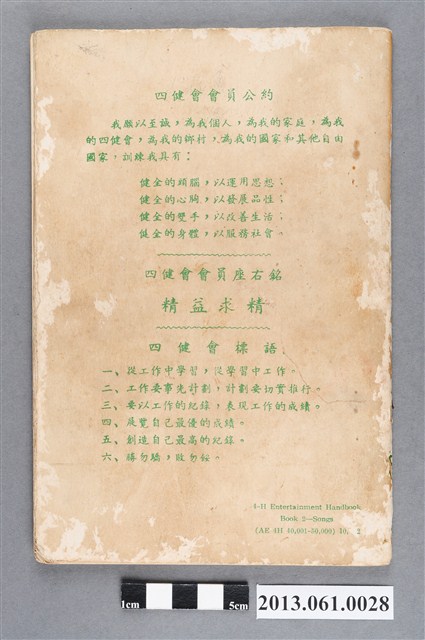 四健會會員公約
我願以至誠，為我個人，為我的家庭，為我
的四健會，為我的鄉村，為我的國家和其他自由
國家，訓練我具有：
健全的頭腦，以運用思想；
健全的心胸，以發展品性；
健全的雙手，以改善生活；
健全的身體，以服務社會。
四健會會員座右銘
精益求精
四健會標語
一、從工作中學習，從學習中工作。
二、工作要事先計劃，計劃要切實推行。
三、要以工作的紀錄，表現工作的成績。
四、展覽自己最優的成績。
五、創造自己最高的紀錄。
六、勝勿驕，敗勿餒。
4-H Entertainment Handbook
Book 2—Songs
(AE 4H 40,001-50,000) 10, 2
1cm 5cm
2013.061.0028